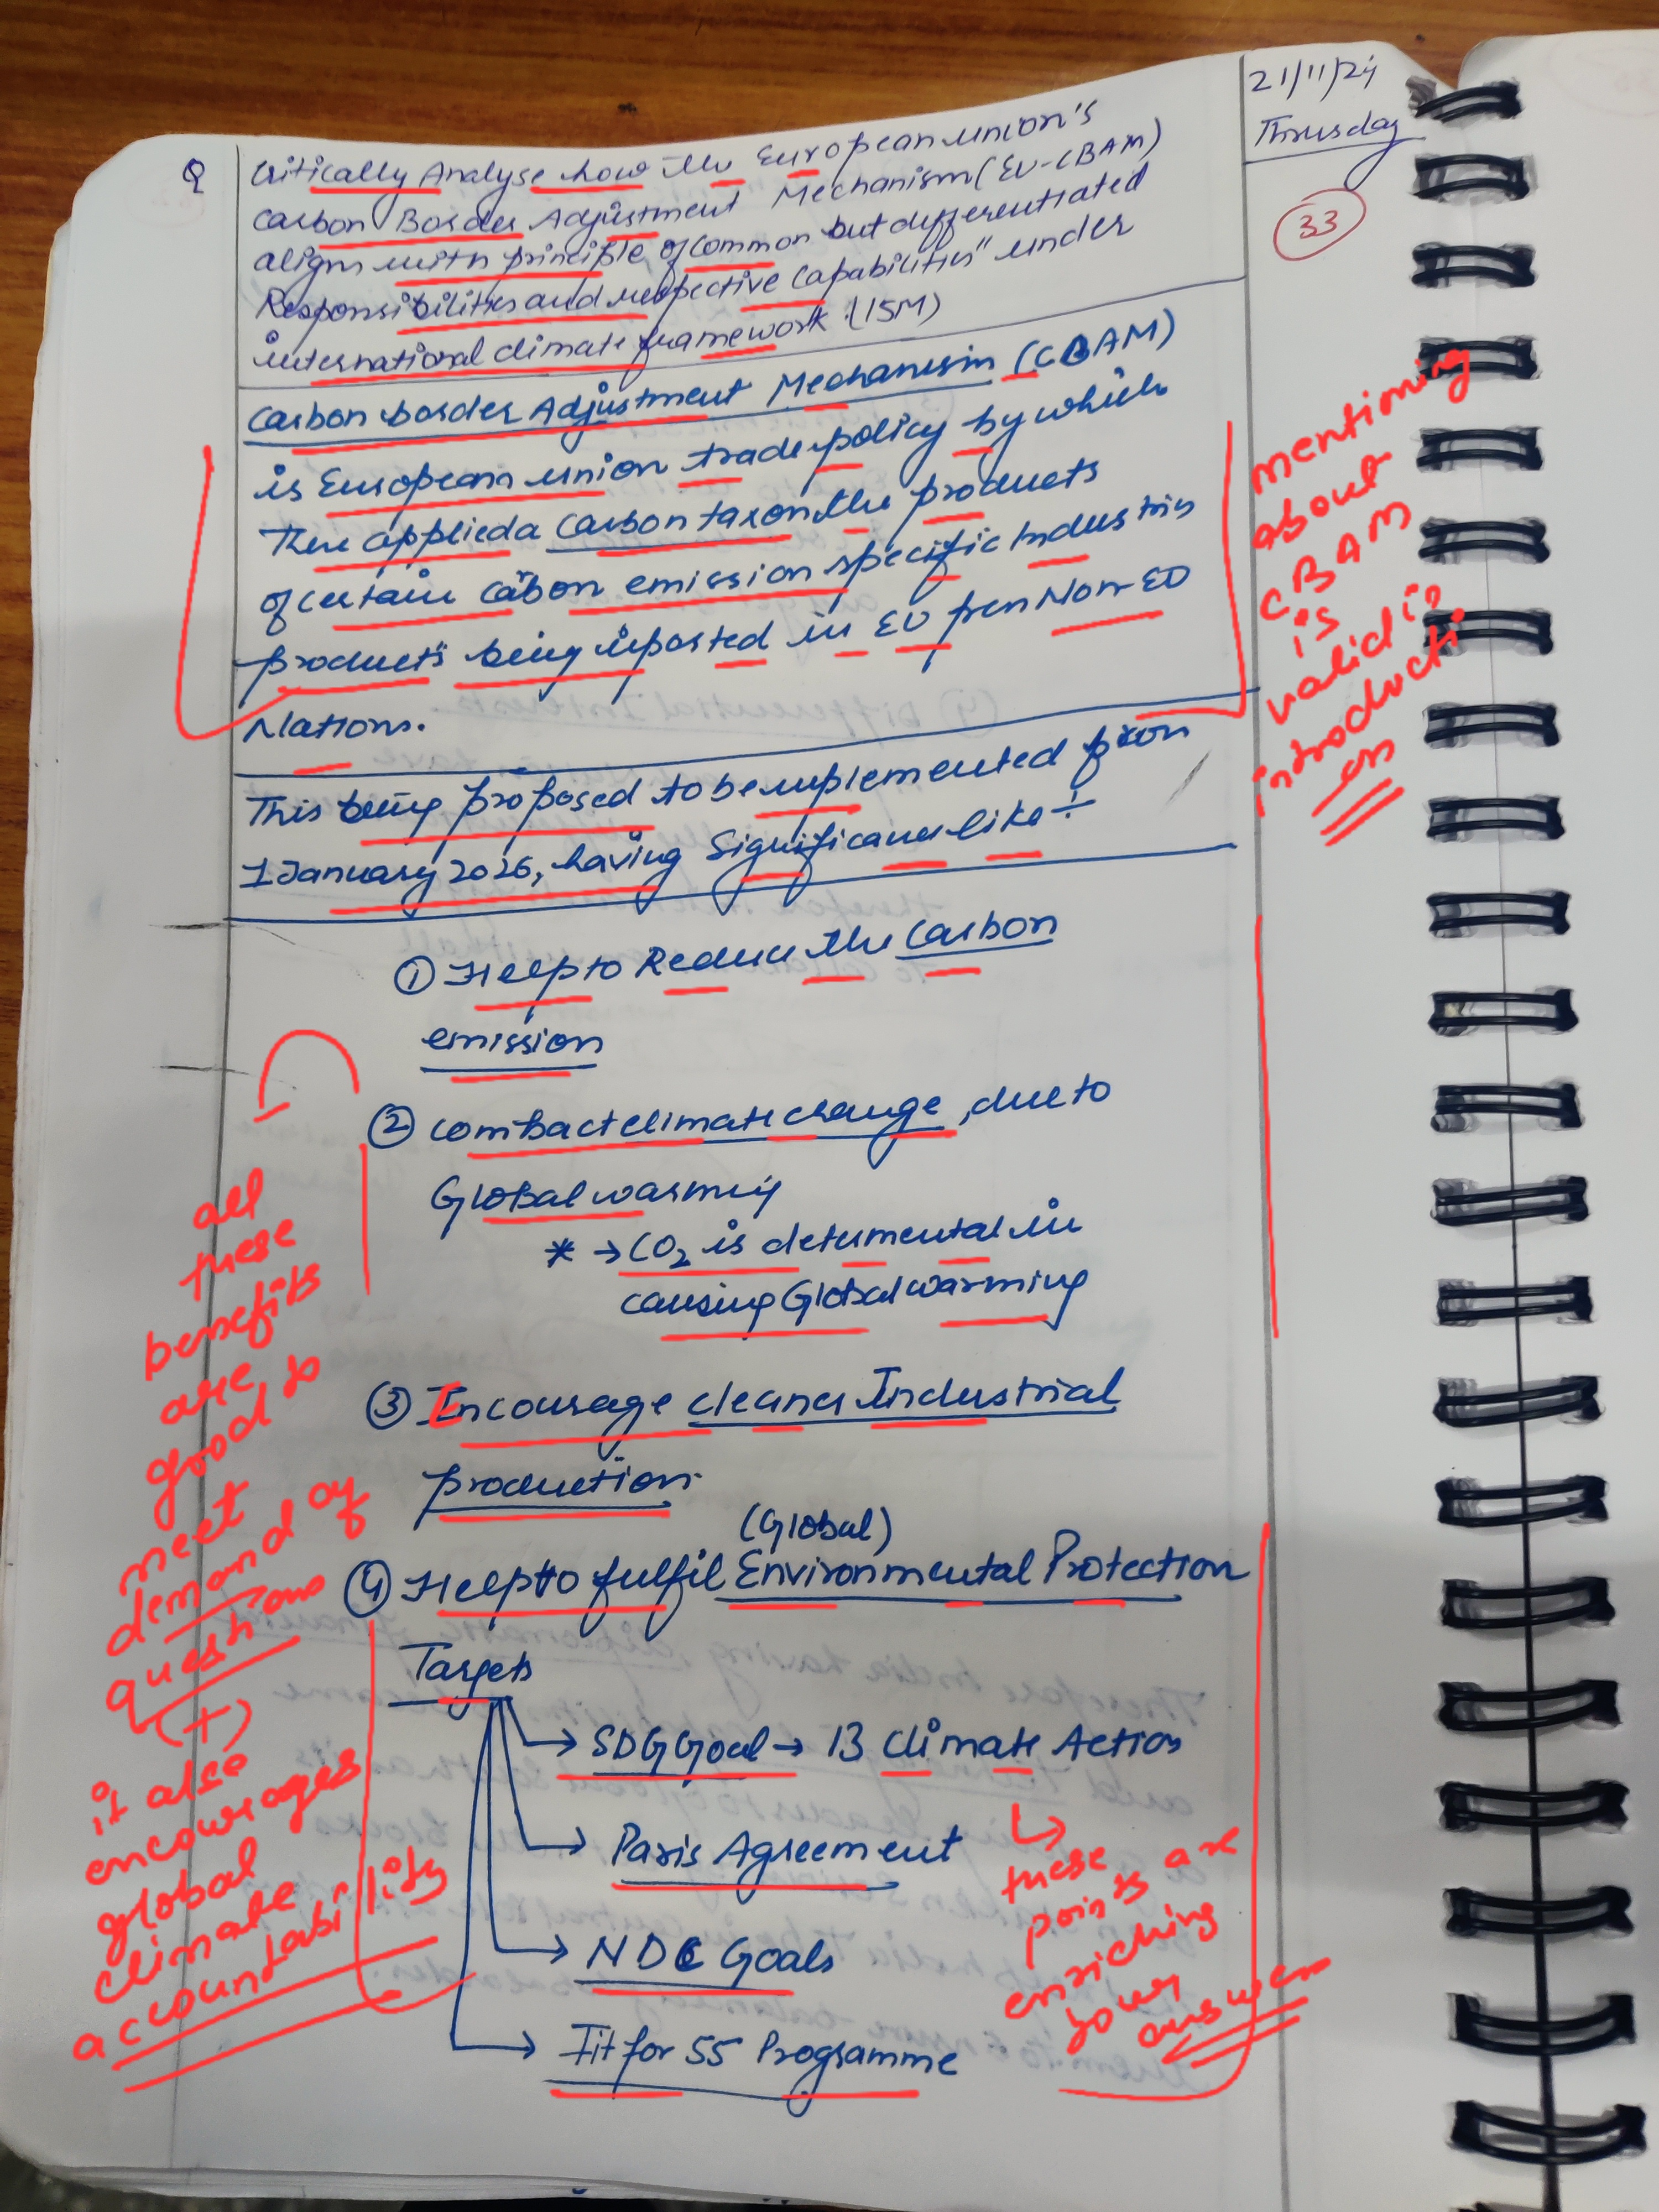 21/11/24
Thrusday
33
Q Critically Analyse how the European union's
Carbon Border Adjustment Mechanism (EU-CBAM)
aligns with principle of common but differentiated
Responsibilities and respective capabilities" under
international climate framework. (15M)
Carbon border Adjustment Mechanism (CBAM)
is European union trade policy by which
There applied a carbon tax on the products
of certain carbon emission specific Industries
products being inported in EU from Non-EU
Nations.
mentioning
about
CBAM
is
valid in
introducti
on
This being proposed to be implemented from
1 January 2026, having Significance like ÷
① Help to Reduce the carbon
emission
② combact climate change, due to
Global warming
* → CO2 is detrimental in
causing Global warming
③ Encourage cleaner Industrial
production.
(Global)
④ Help to fulfil Environmental Protection
Targets
→ SDG Goal → 13 Climate Action
→ Paris Agreement
→ NDC Goals
→ Fit for 55 Programme
all
these
benefits
are
good to
meet
demand of
questions
(+)
it also
encourages
global
climate
accountability
these
points are
enriching
your
answer